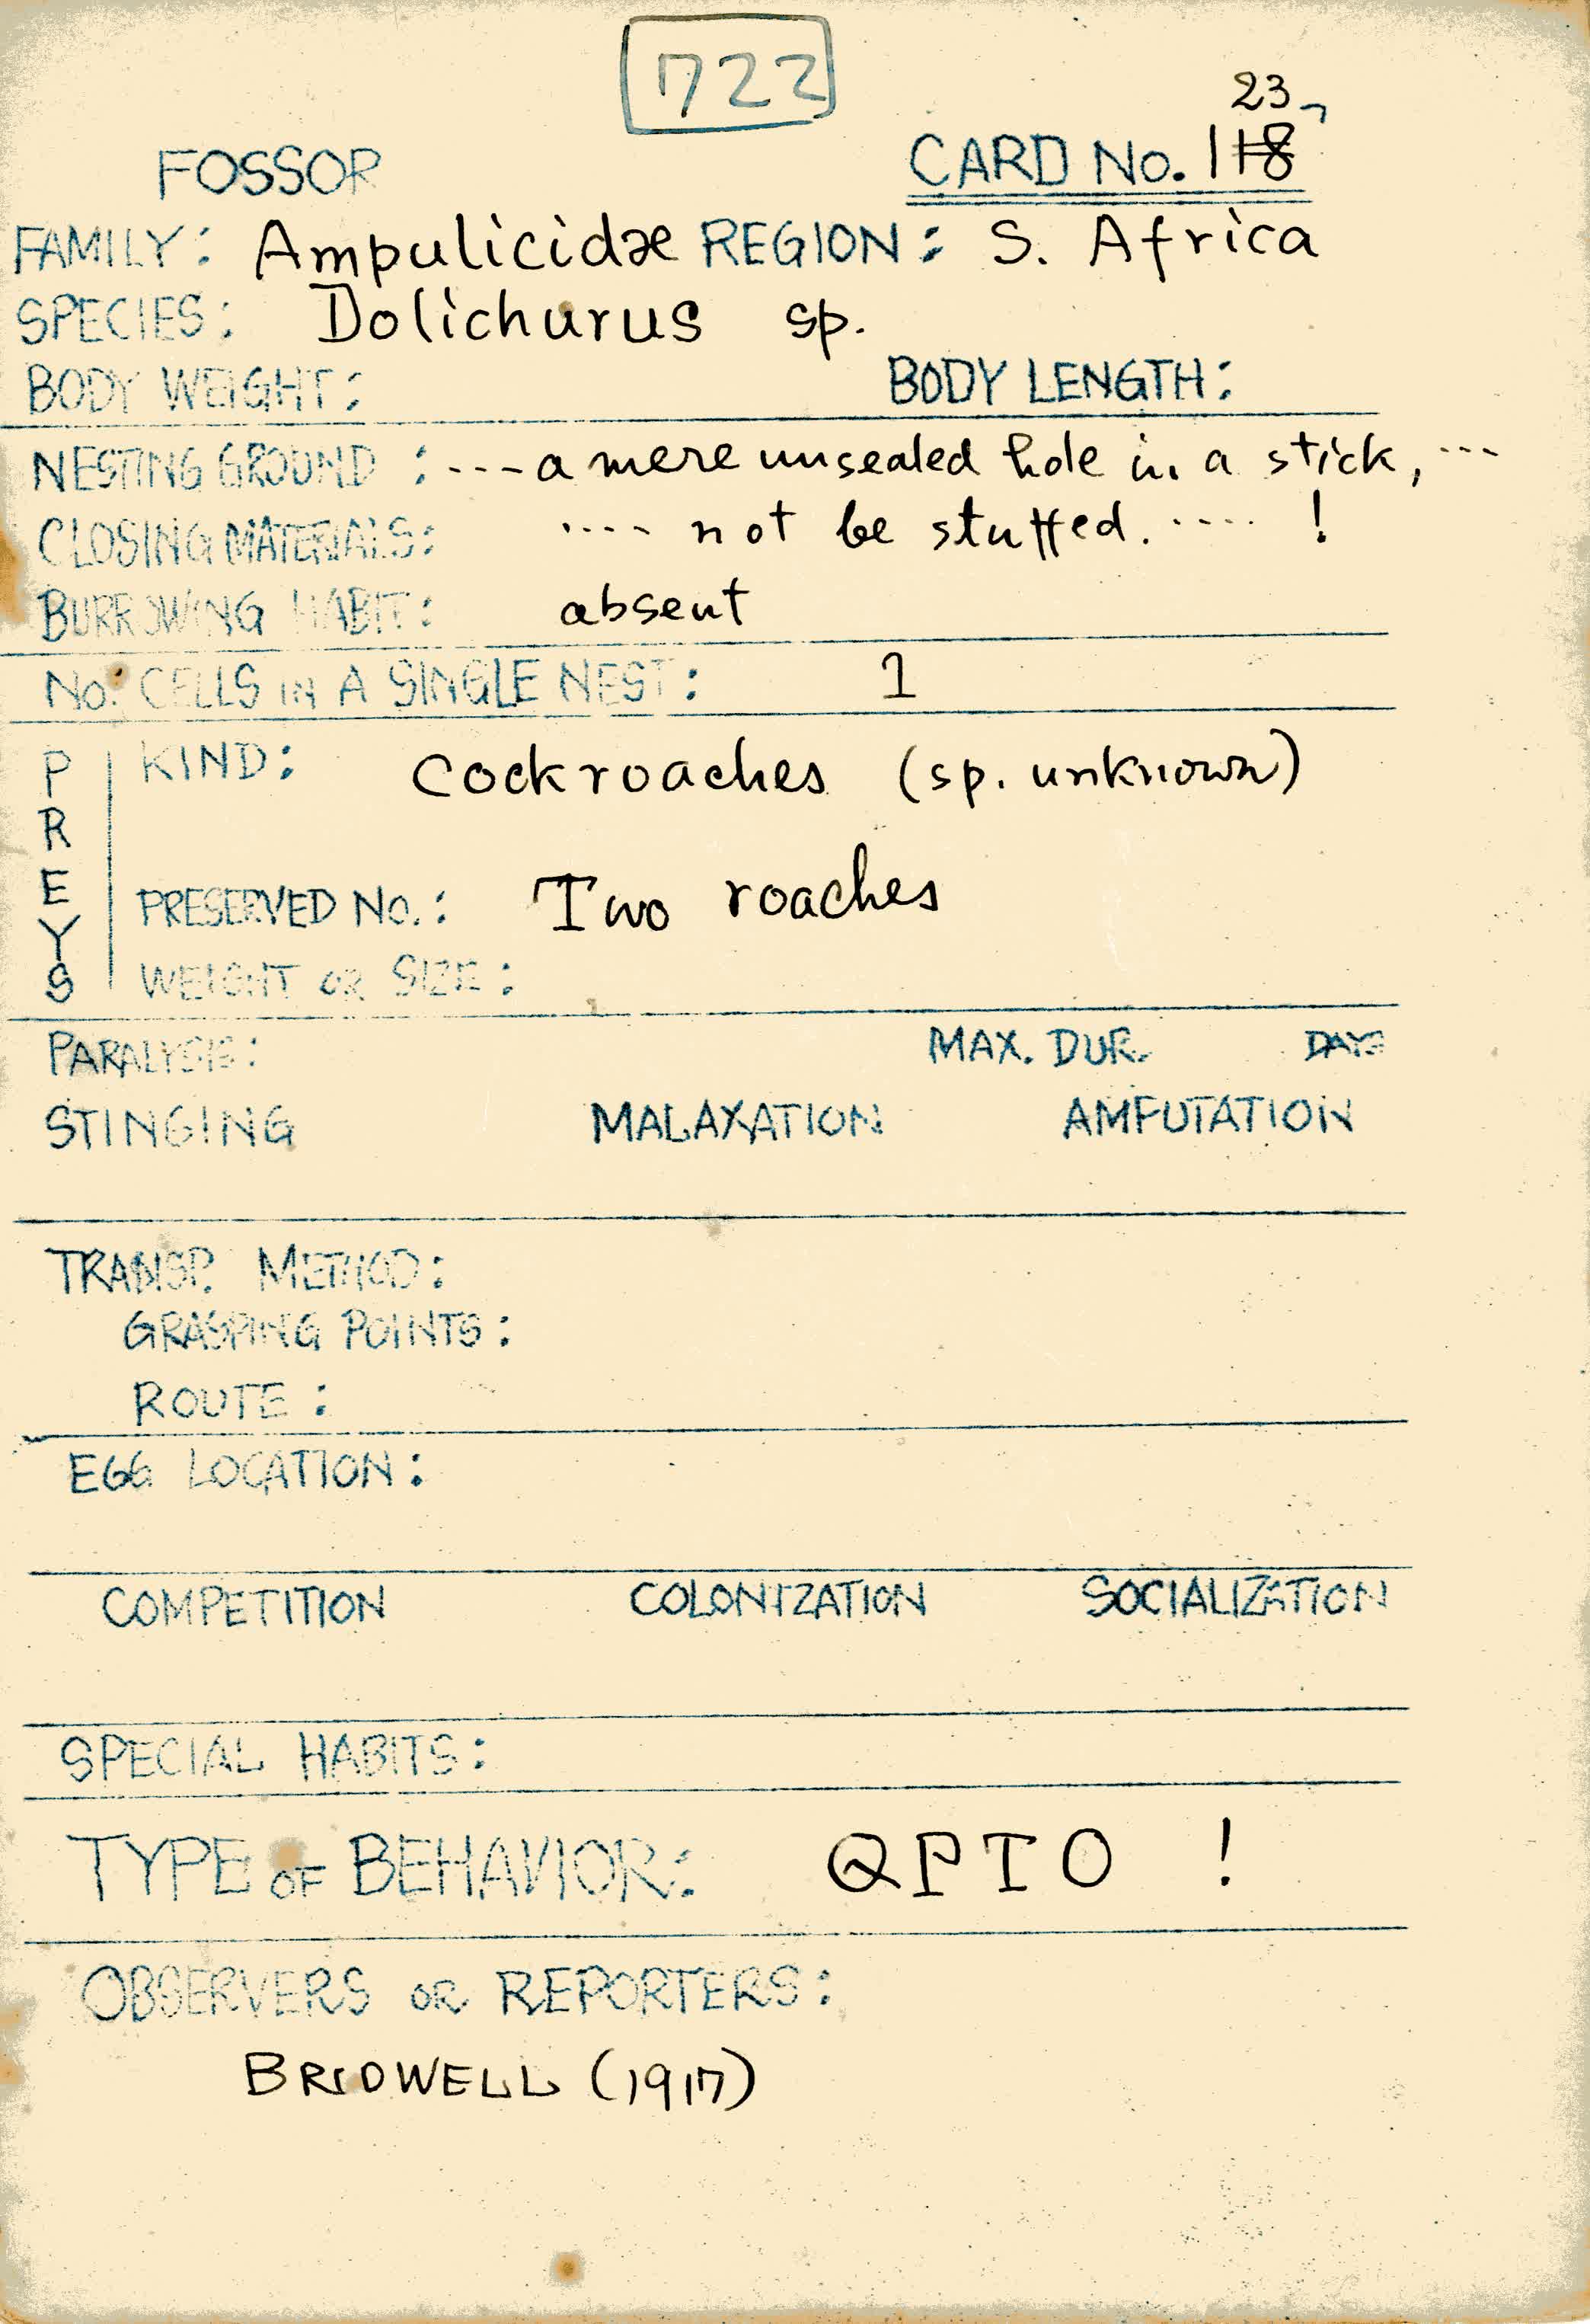 722
23
FOSSOR CARD No. 118
FAMILY: Ampulicidæ REGION: S. Africa
SPECIES: Dolichurus sp.
BODY WEIGHT: BODY LENGTH:
NESTING GROUND: --- a mere unsealed hole in a stick, ---
CLOSING MATERIALS: ---- not be stuffed. ---- !
BURROWING HABIT: absent
No. CELLS IN A SINGLE NEST: 1
PREYS
KIND: Cockroaches (sp. unknown)
PRESERVED No.: Two roaches
WEIGHT OR SIZE:
PARALYSIS: MAX. DUR. DAYS
STINGING MALAXATION AMPUTATION
TRANSP. METHOD:
GRASPING POINTS:
ROUTE:
EGG LOCATION:
COMPETITION COLONIZATION SOCIALIZATION
SPECIAL HABITS:
TYPE OF BEHAVIOR: QPTO !
OBSERVERS OR REPORTERS:
BRIDWELL (1917)